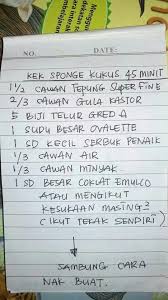 NO.
DATE:
KEK SPONGE KUKUS 45 MINIT
1/2 CAWAN TEPUNG SUPER FINE
2/3 CAWAN GULA KASTOR
5 BIJI TELUR GRED A
1 SUDU BESAR OVALETTE
1 SD KECIL SERBUK PENAIK
1/3 CAWAN AIR
1/3 CAWAN MINYAK
1 SD BESAR COKLAT EMULCO
ATAU MENGIKUT
KESUKAAN MASING2
(IKUT TEKAK SENDIRI)
SAMBUNG CARA
NAK BUAT.